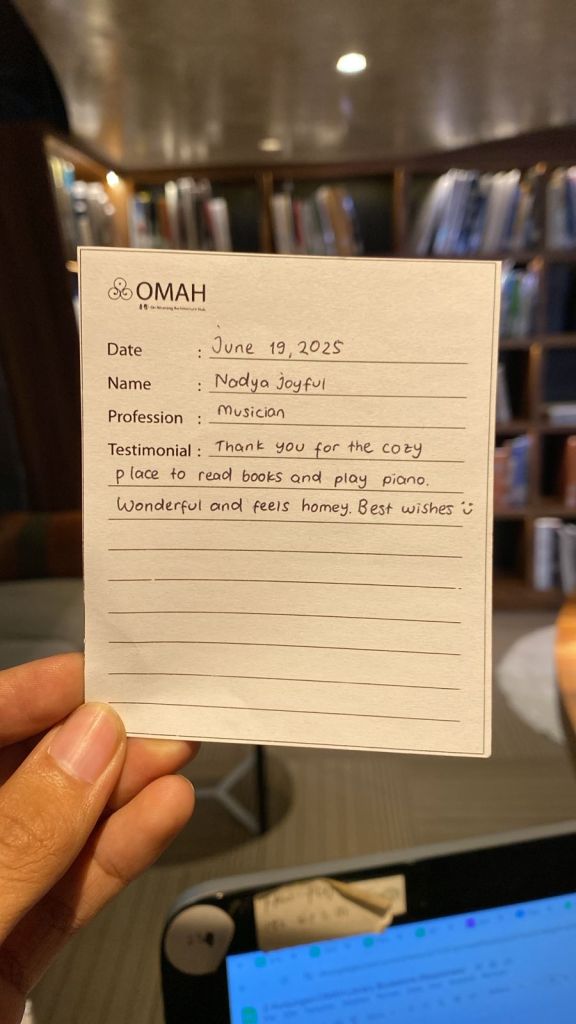 OMAH
Date : June 19, 2025
Name : Nadya Joyful
Profession : Musician
Testimonial : Thank you for the cozy
place to read books and play piano.
Wonderful and feels homey. Best wishes